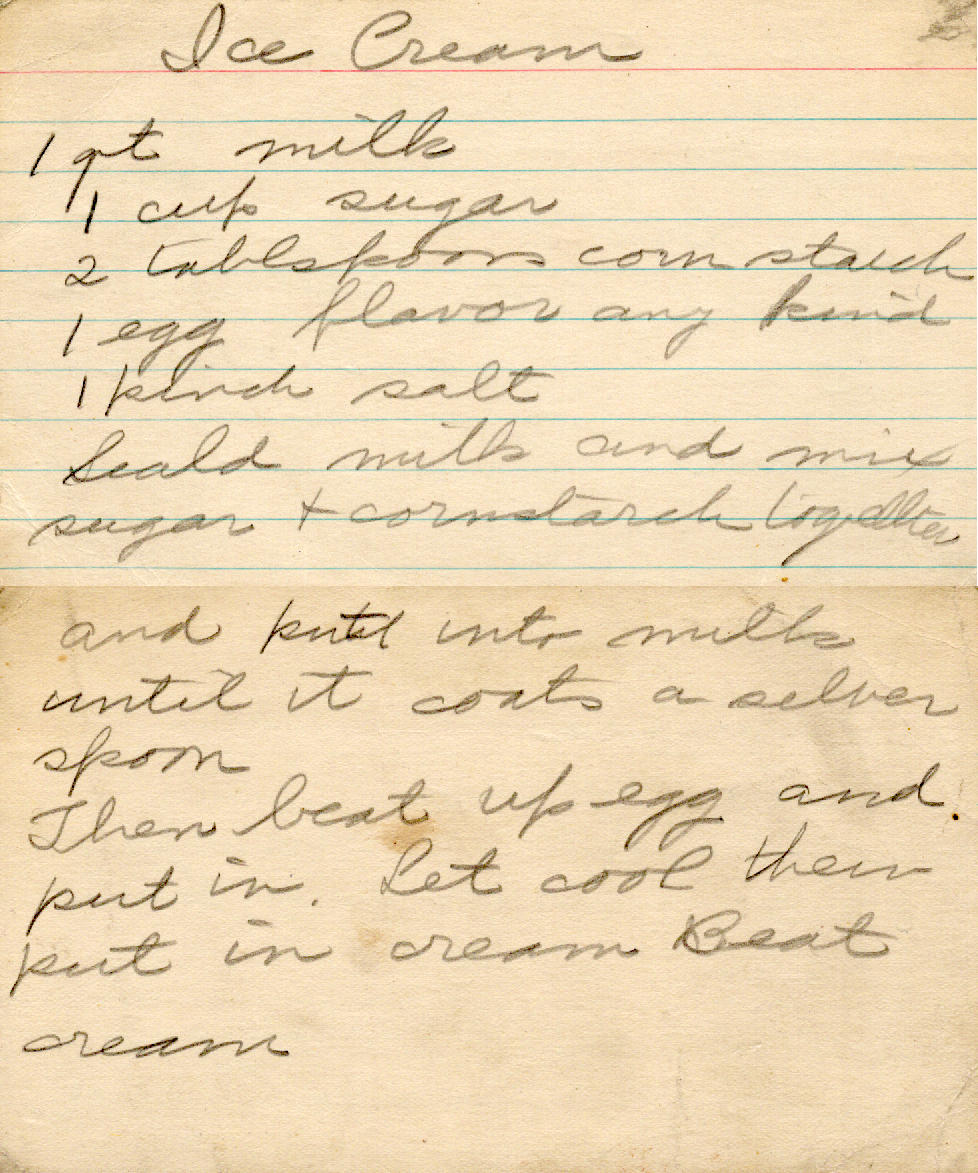 Ice Cream
1 qt milk
1 cup sugar
2 tablspoons corn starch
1 egg flavor any kind
1 pinch salt
Scald milk and mix
sugar + cornstarch together
and put into milk
until it coats a silver
spoon
Then beat up egg and
put in. Let cool then
put in cream Beat
cream